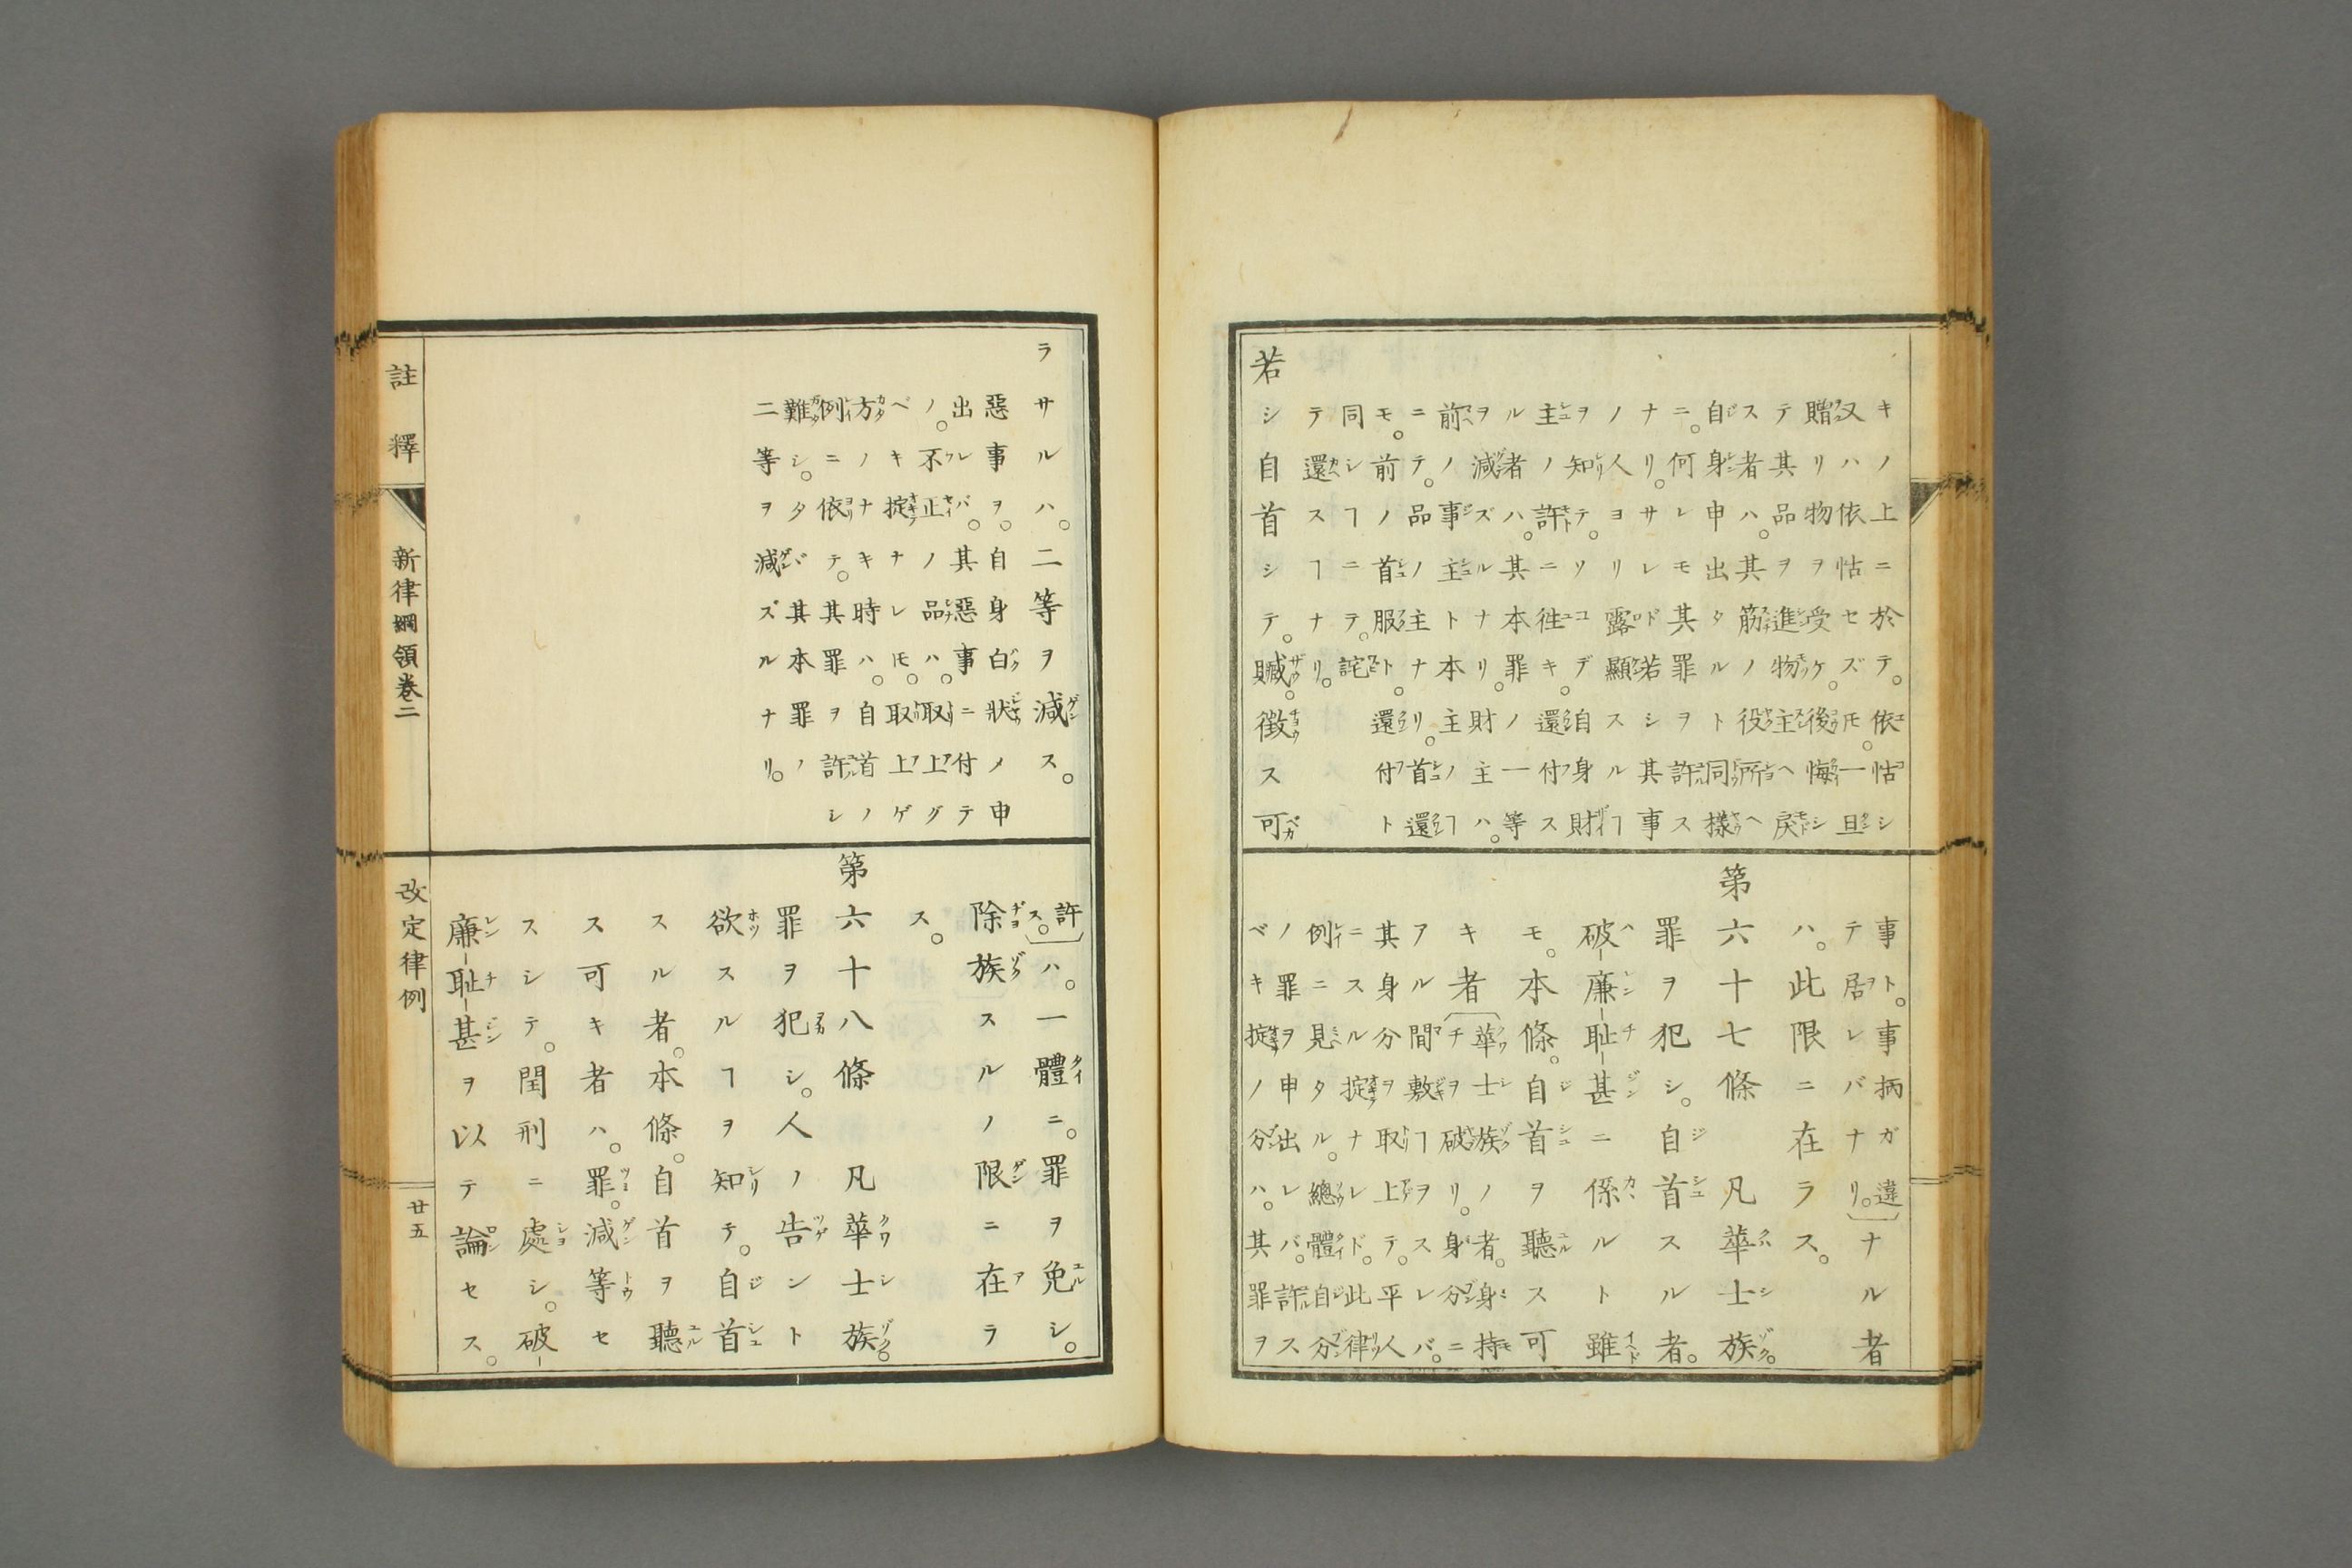 キノ上ニ於テ。依怙シ
又ハ依怙セズ𪜈。一旦
贈リ物ヲ受ケ。後悔シ
テ其品ヲ進物主ヘ戻
ス者ハ。其筋ノ役所ヘ
自身申出タルト同樣
ニ。何レモ其罪ヲ許ス
ナリ。サレド若シ其事
ノ人ヨリ露顯スルヿ
ヲ知テ。ソコデ自身財
主ノ許ニ徃キ。還付ス
ル者ハ。其本罪ノ一等
ヲ減ズルナリ。財主ハ。
前ノ事主ト本主ノヿ
ニテ。品ノ主ナリ。首還
モ。前ノ首服ト。還付ト
同シヿニテ。詫
テ還スヿナリ。
若シ自首シテ。贓。徴ス可
事ト。事柄ガ違
テ居レバナリ。ナル者
ハ。此限ニ在ラス。
第六十七條 凡華士族。
罪ヲ犯シ。自首スル者。
破廉耻甚ニ係ルト雖
モ。本條。自首ヲ聽ス可
キ者華士族ノ者。身持
チヲ破リ。身分ニ
アル間敷ヿヲスレバ。
其身分ヲ取上テ。平人
ニスル掟ナレド。此律
例ニ見タル。總體自分
ノ罪ヲ申出レバ。許ス
ベキ掟ノ分ハ。其罪ヲ
ラサルハ。二等ヲ減ス。
惡事ヲ。自身白狀メ申
出レバ。其惡事ニ付テ
ノ。不正ノ品ハ。取上グ
ベキ掟ナレ𪜈。取上ゲ
方ノナキ時ハ。自首ノ
例ニ依テ。其罪ヲ許シ
難シ。タバ其本罪ノ
二等ヲ減ズルナリ。
許ス。ハ。一體ニ。罪ヲ免シ。
除族スルノ限ニ在ラ
ス。
第六十八條 凡華士族。
罪ヲ犯シ。人ノ告ント
欲スルヿヲ知テ。自首
スル者。本條。自首ヲ聽
ス可キ者ハ。罪。減等セ
スシテ。閏刑ニ處シ。破
廉耻甚ヲ以テ論セス。
註釋 新律綱領卷二 改定律例 廿五